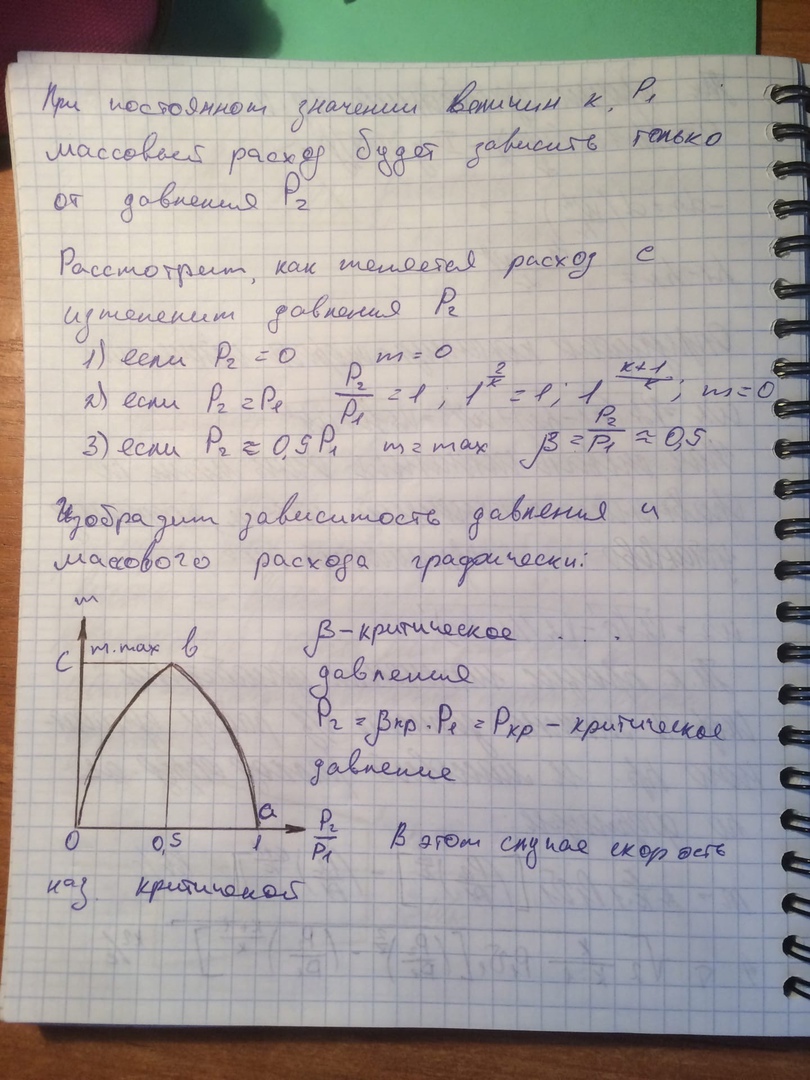 При постоянном значении величин к, P₁
массовый расход будет зависить только
от давления P₂
Рассмотрим, как меняется расход с
изменением давления P₂
1) если P₂ = 0 m = 0
2) если P₂ = P₁ P₂/P₁ = 1 ; 1^(2/к) = 1 ; 1^((к+1)/к) ; m = 0
3) если P₂ ≈ 0,5 P₁ m = max β = P₂/P₁ ≈ 0,5
Изобразим зависимость давления и
масового расхода графически:
m
C m.max b
0 0,5 1 a P₂/P₁
β – критическое . . . .
давления
P₂ = βкр · P₁ = Pкр – критическое
давление
В этом случае скорость
наз. критической